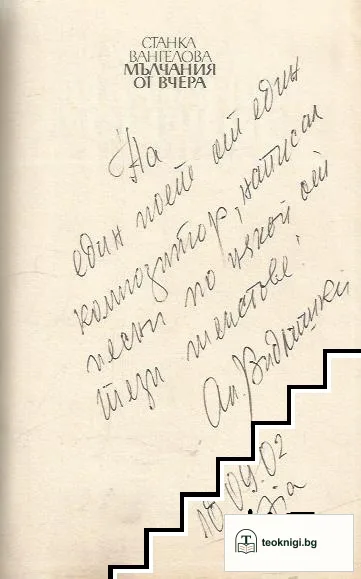 СТАНКА
ВАНГЕЛОВА
МЪЛЧАНИЯ
ОТ ВЧЕРА
На
един поет от един
композитор, написал
песни по някой от
тези текстове,
Ал.
10.09.02
teoknigi.bg